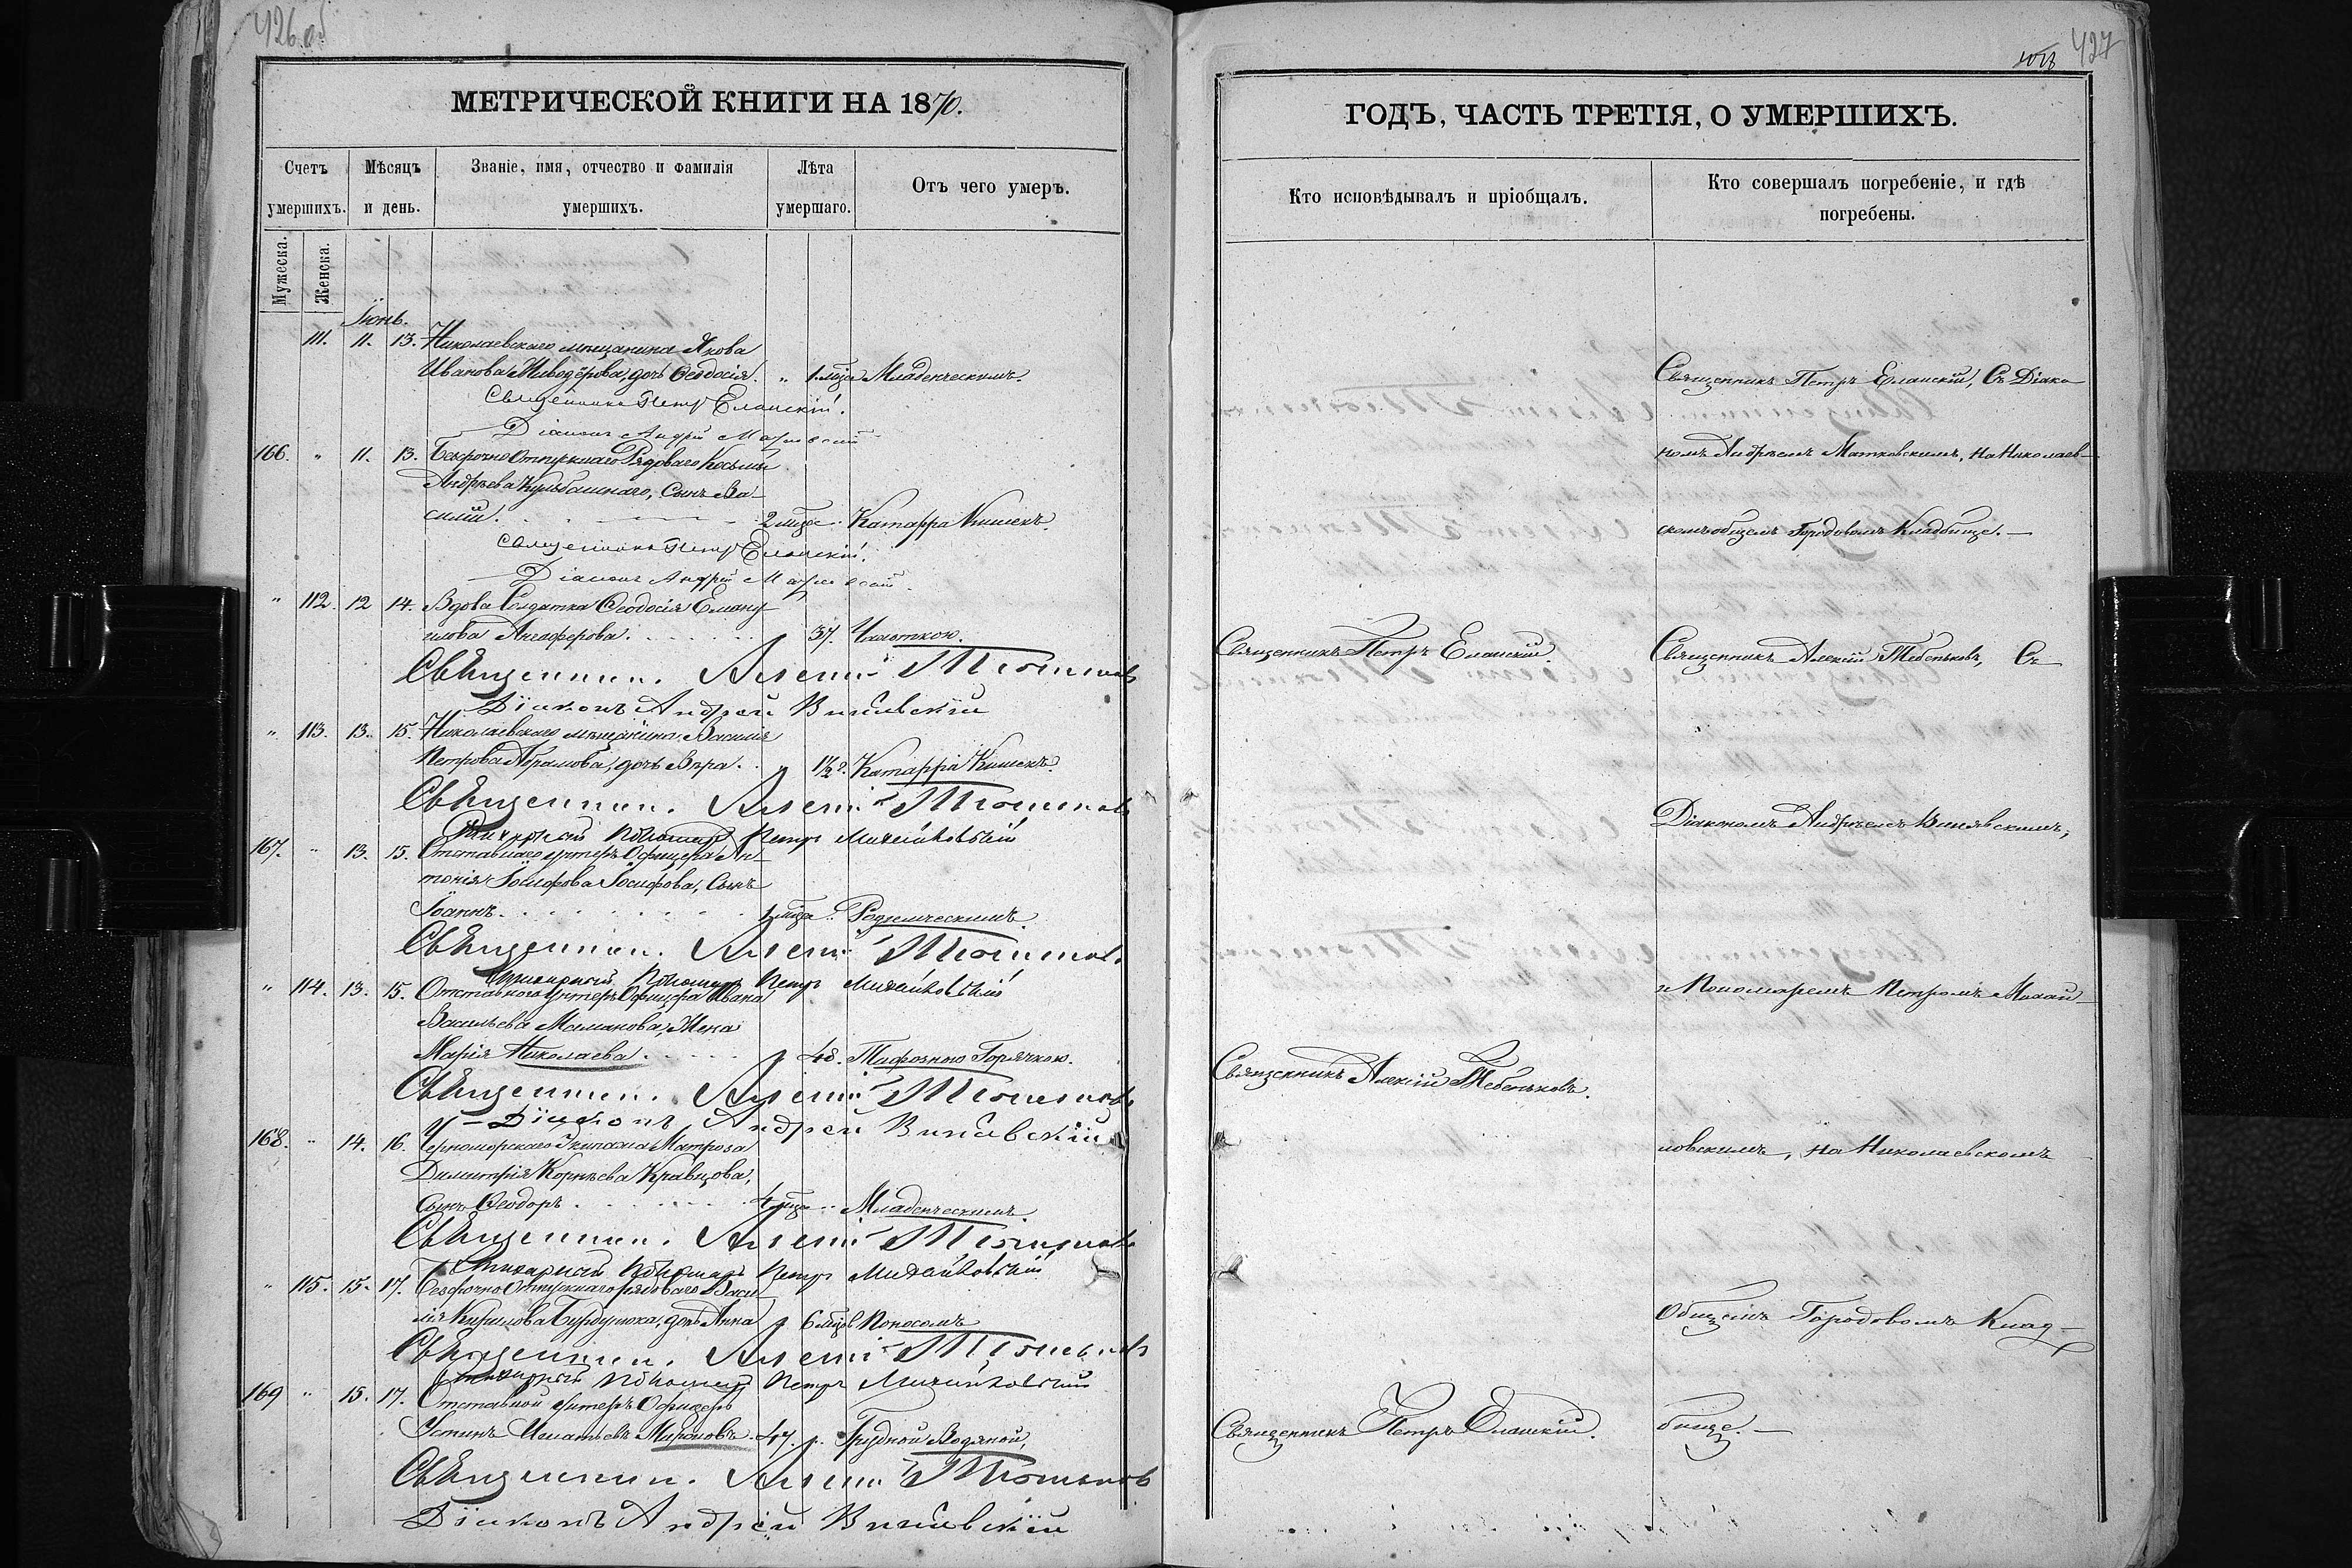 426 об
МЕТРИЧЕСКОЙ КНИГИ НА 1870.
Счетъ умершихъ.
Мѣсяцъ и день.
Званіе, имя, отчество и фамилія умершихъ.
Лѣта умершаго.
Отъ чего умеръ.
Мужеска.
Женска.
Іюнь.
111. 11. 13. Николаевскаго мѣщанина Якова
Иванова, дочь Ѳеодосія. „ 1 мѣца Младенческимъ.
Священникъ Петръ Еланскій.
Діаконъ Андрей
166. „ 11. 13. Безсрочно Отпускнаго Рядоваго Косьмы
Андреева Кульбашнаго, Сынъ Ва-
силій. 2 мѣца „ Катарра Кишекъ.
Священникъ Петръ Еланскій.
Діаконъ Андрей
„ 112. 12 14. Вдова Солдатка Ѳеодосія Еману-
илова 37. Чахоткою.
Священникъ Алексій
Діаконъ Андрей
„ 113. 13. 15. Николаевскаго мѣщанина Василія
Петрова Абрамова, дочь Вѣра. „ 1½ г. Катарра Кишекъ.
Священникъ Алексій
Стихарный Пономарь Петръ Михайловскій
167. „ 13. 15. Отставнаго унтеръ Офицера Ан-
тонія Іосифова Іосифова, Сынъ
Іоаннъ. 1 мѣца „ Родимческимъ.
Священникъ Алексій
Стихарный Пономарь Петръ Михайловскій
„ 114. 13. 15. Отставного Унтеръ Офицера Ивана
Васильева, Жена
Марія Николаева. „ 48. Тифозною Горячкою.
Священникъ Алексій
Діаконъ Андрей
168. „ 14. 16. Черноморскаго Экипажа Матроза
Димитрія Корнѣева Кравцова,
Сынъ Ѳеодоръ. 4 мѣца „ Младенческимъ.
Священникъ Алексій
Стихарный Пономарь Петръ Михайловскій
„ 115. 15. 17. Безсрочно Отпускнаго рядоваго Васи-
лія Кирилова Бурдунюка, дочь Анна „ 6 мѣцов Поносомъ
Священникъ Алексій
Стихарный Пономарь Петръ Михайловскій
169 „ 15. 17. Отставной унтеръ Офицеръ
Устинъ Игнатьевъ Мироновъ. 47. „ Грудной Водяной,
Священникъ Алексій
Діаконъ Андрей
427
ГОДЪ, ЧАСТЬ ТРЕТІЯ, О УМЕРШИХЪ.
Кто исповѣдывалъ и пріобщалъ.
Кто совершалъ погребеніе, и гдѣ погребены.
Священникъ Петръ Еланскій, Съ Діако
номъ Андреемъ Матковскимъ, на Николаев-
скомъ общемъ Городовомъ Кладбище. —
Священникъ Петръ Еланскій.
Священникъ Алексій Тебеньковъ, Съ
Діакономъ Андреемъ
и Пономаремъ Петромъ Михай-
Священникъ Алексій Тебеньковъ.
ловскимъ, на Николаевскомъ
Общемъ Городовомъ Клад-
Священникъ Петръ Еланскій.
бище. —